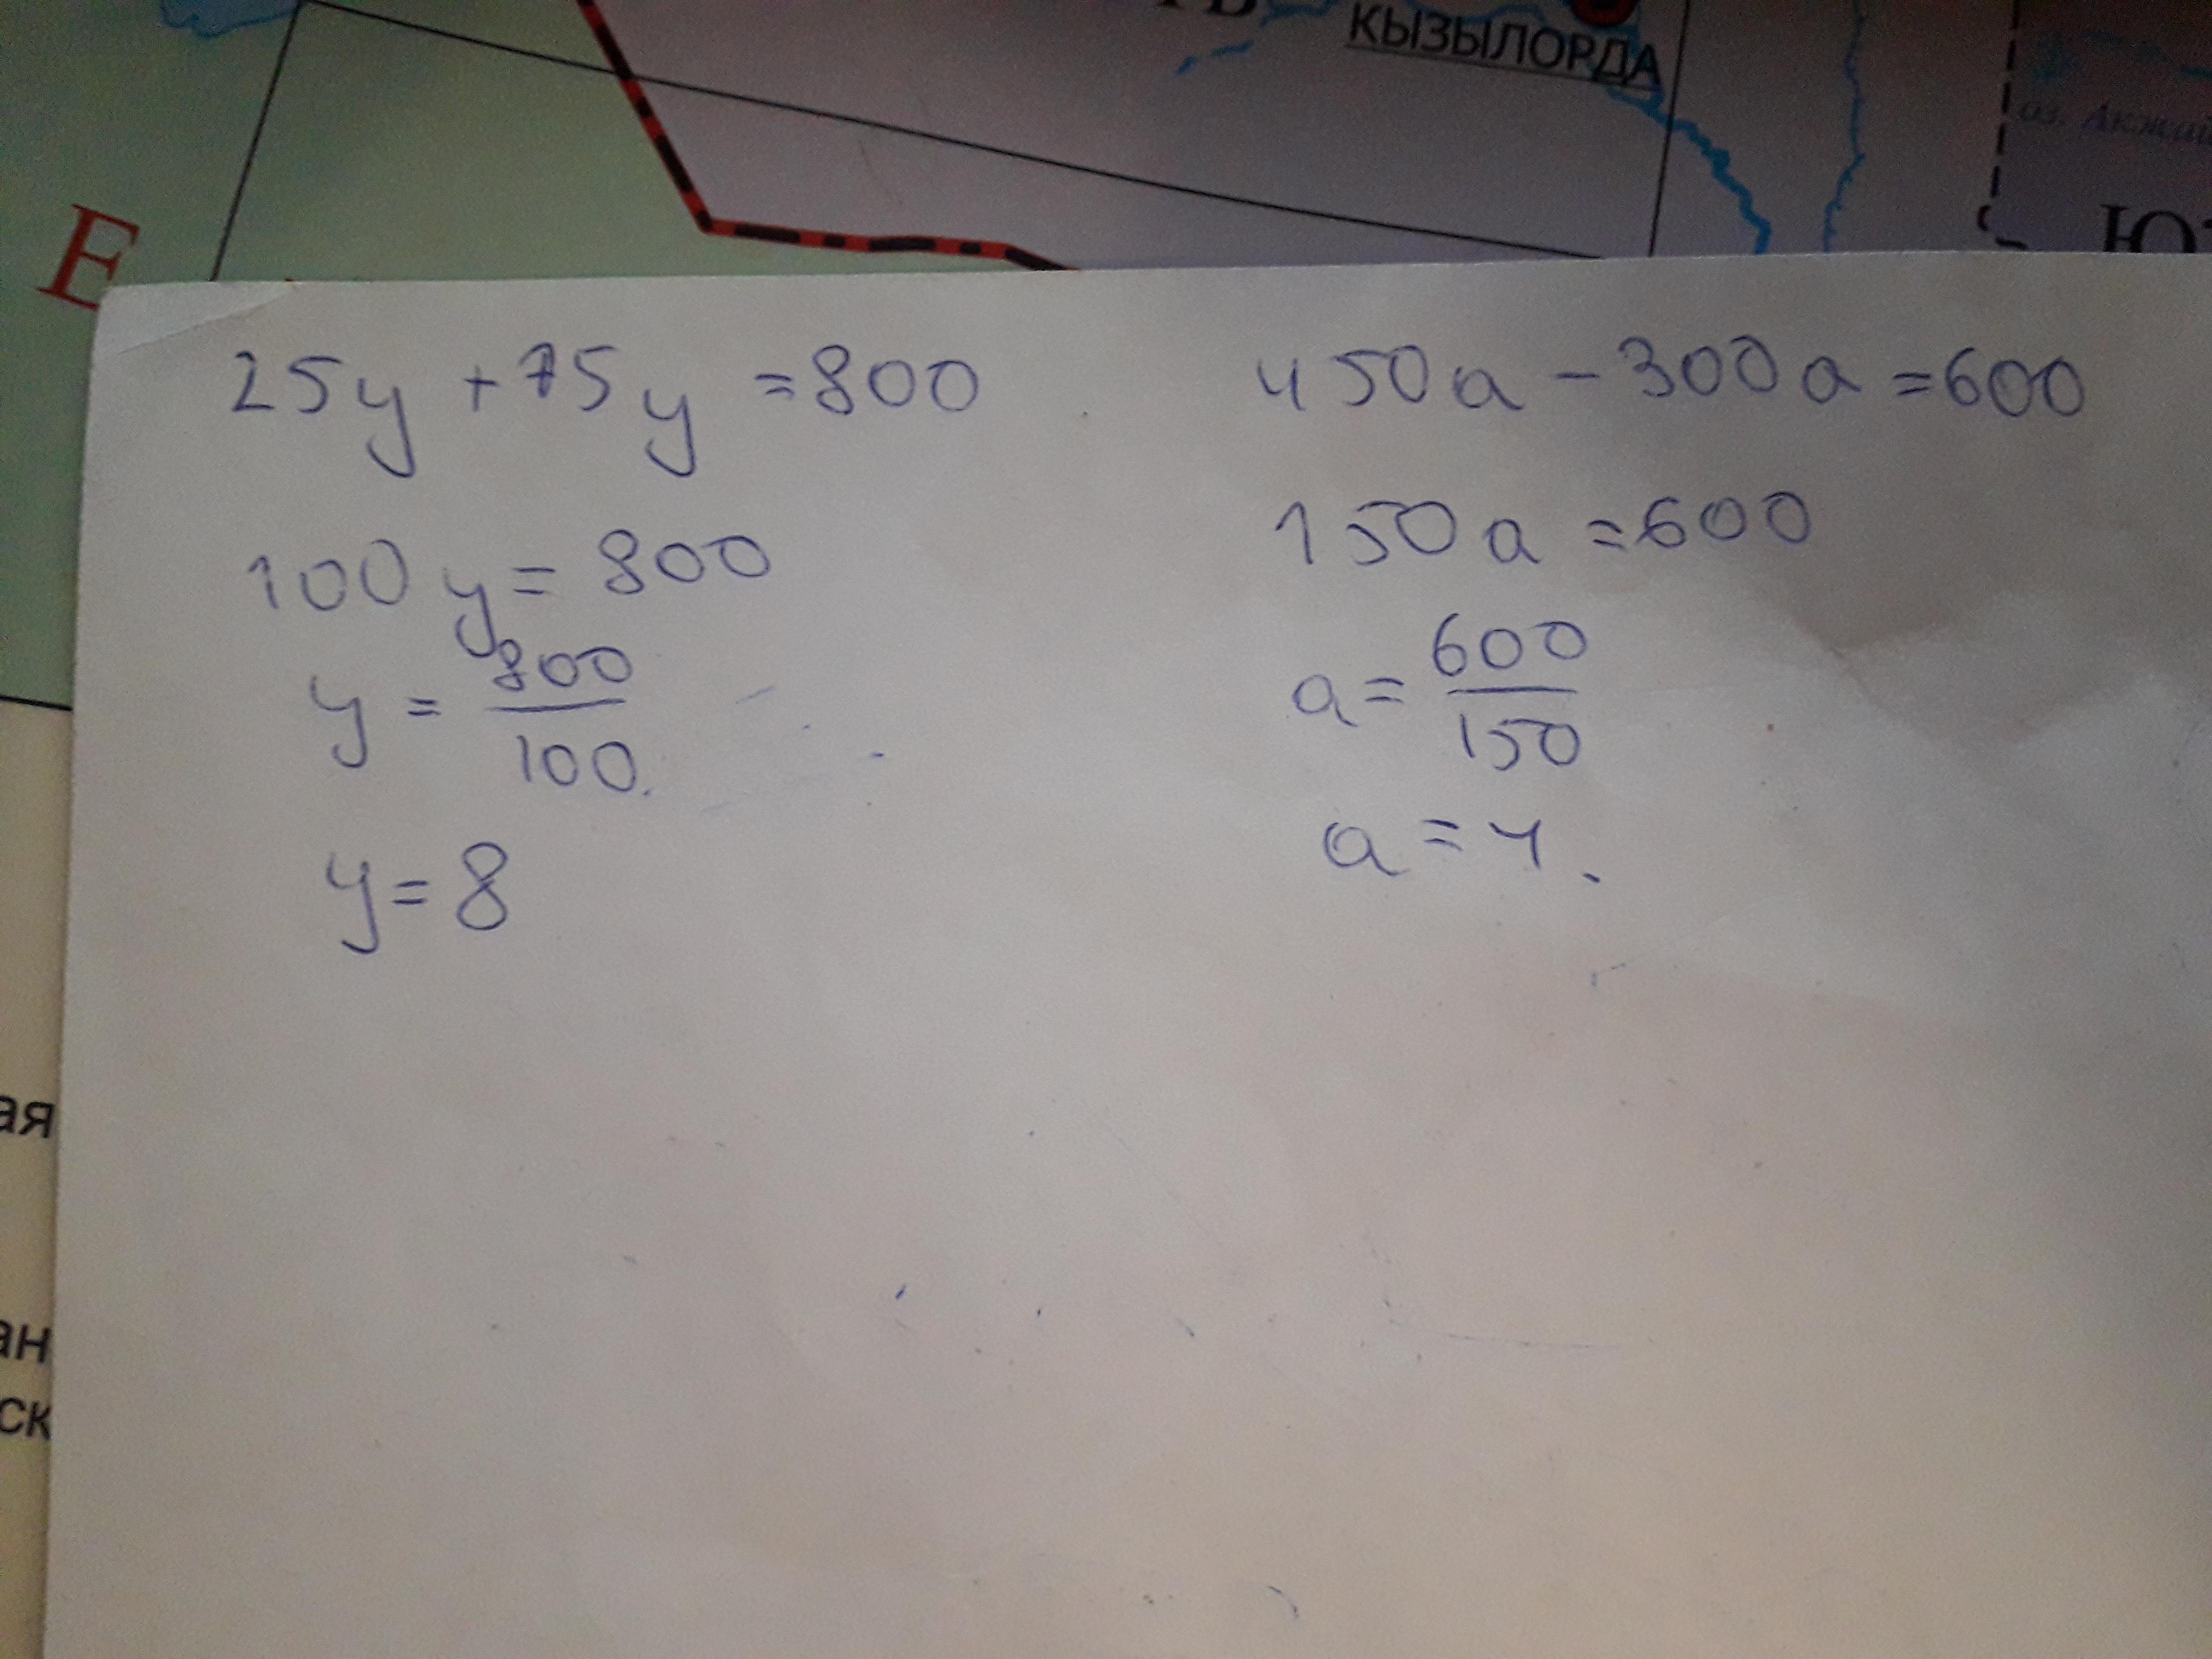 КЫЗЫЛОРДА
оз. Акжай
Е
25y + 75y = 800
100y = 800
y = 800/100.
y = 8
450a - 300a = 600
150a = 600
a = 600/150
a = 4.
ая
ан
ск